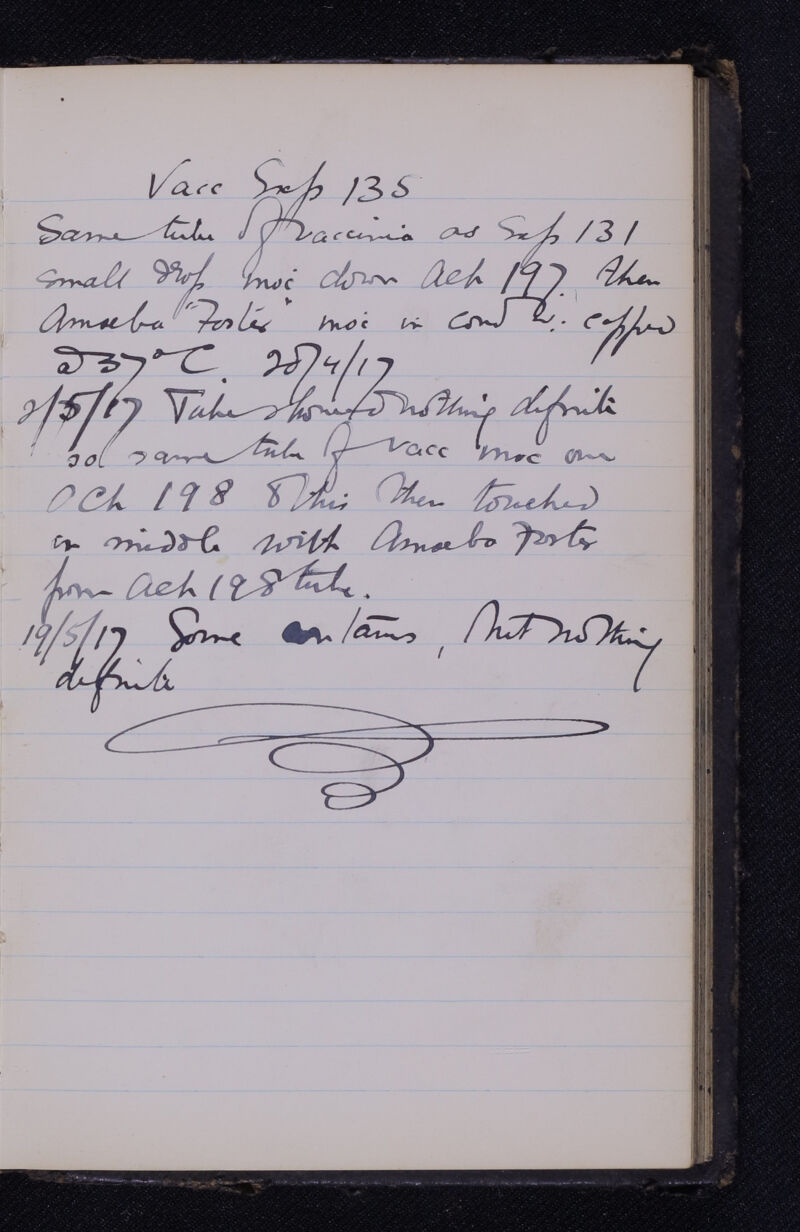 Vacc Exp 135
Same tube of vaccinia as Exp 131
small drop inoc down Ach 197 then
Amoeba "Foster" inoc in cond capped
a 37°C. 28/4/17
2/5/17 Tube showed nothing definite
so same tube of vacc inoc over
Ach 198 & this then touched
in middle with Amoeba Foster
from Ach 198 tube.
19/5/17 Some contams, but nothing
definite